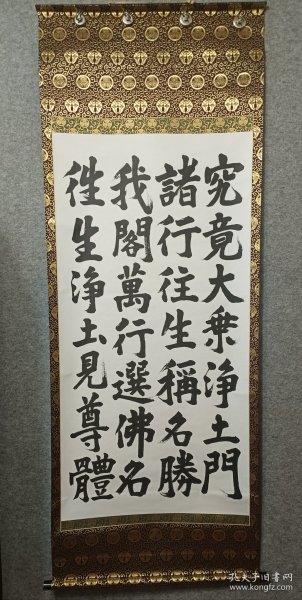 究竟大乗浄土門
諸行往生稱名勝
我閣萬行選佛名
徃生浄土見尊體
孔夫子旧书网
www.kongfz.com